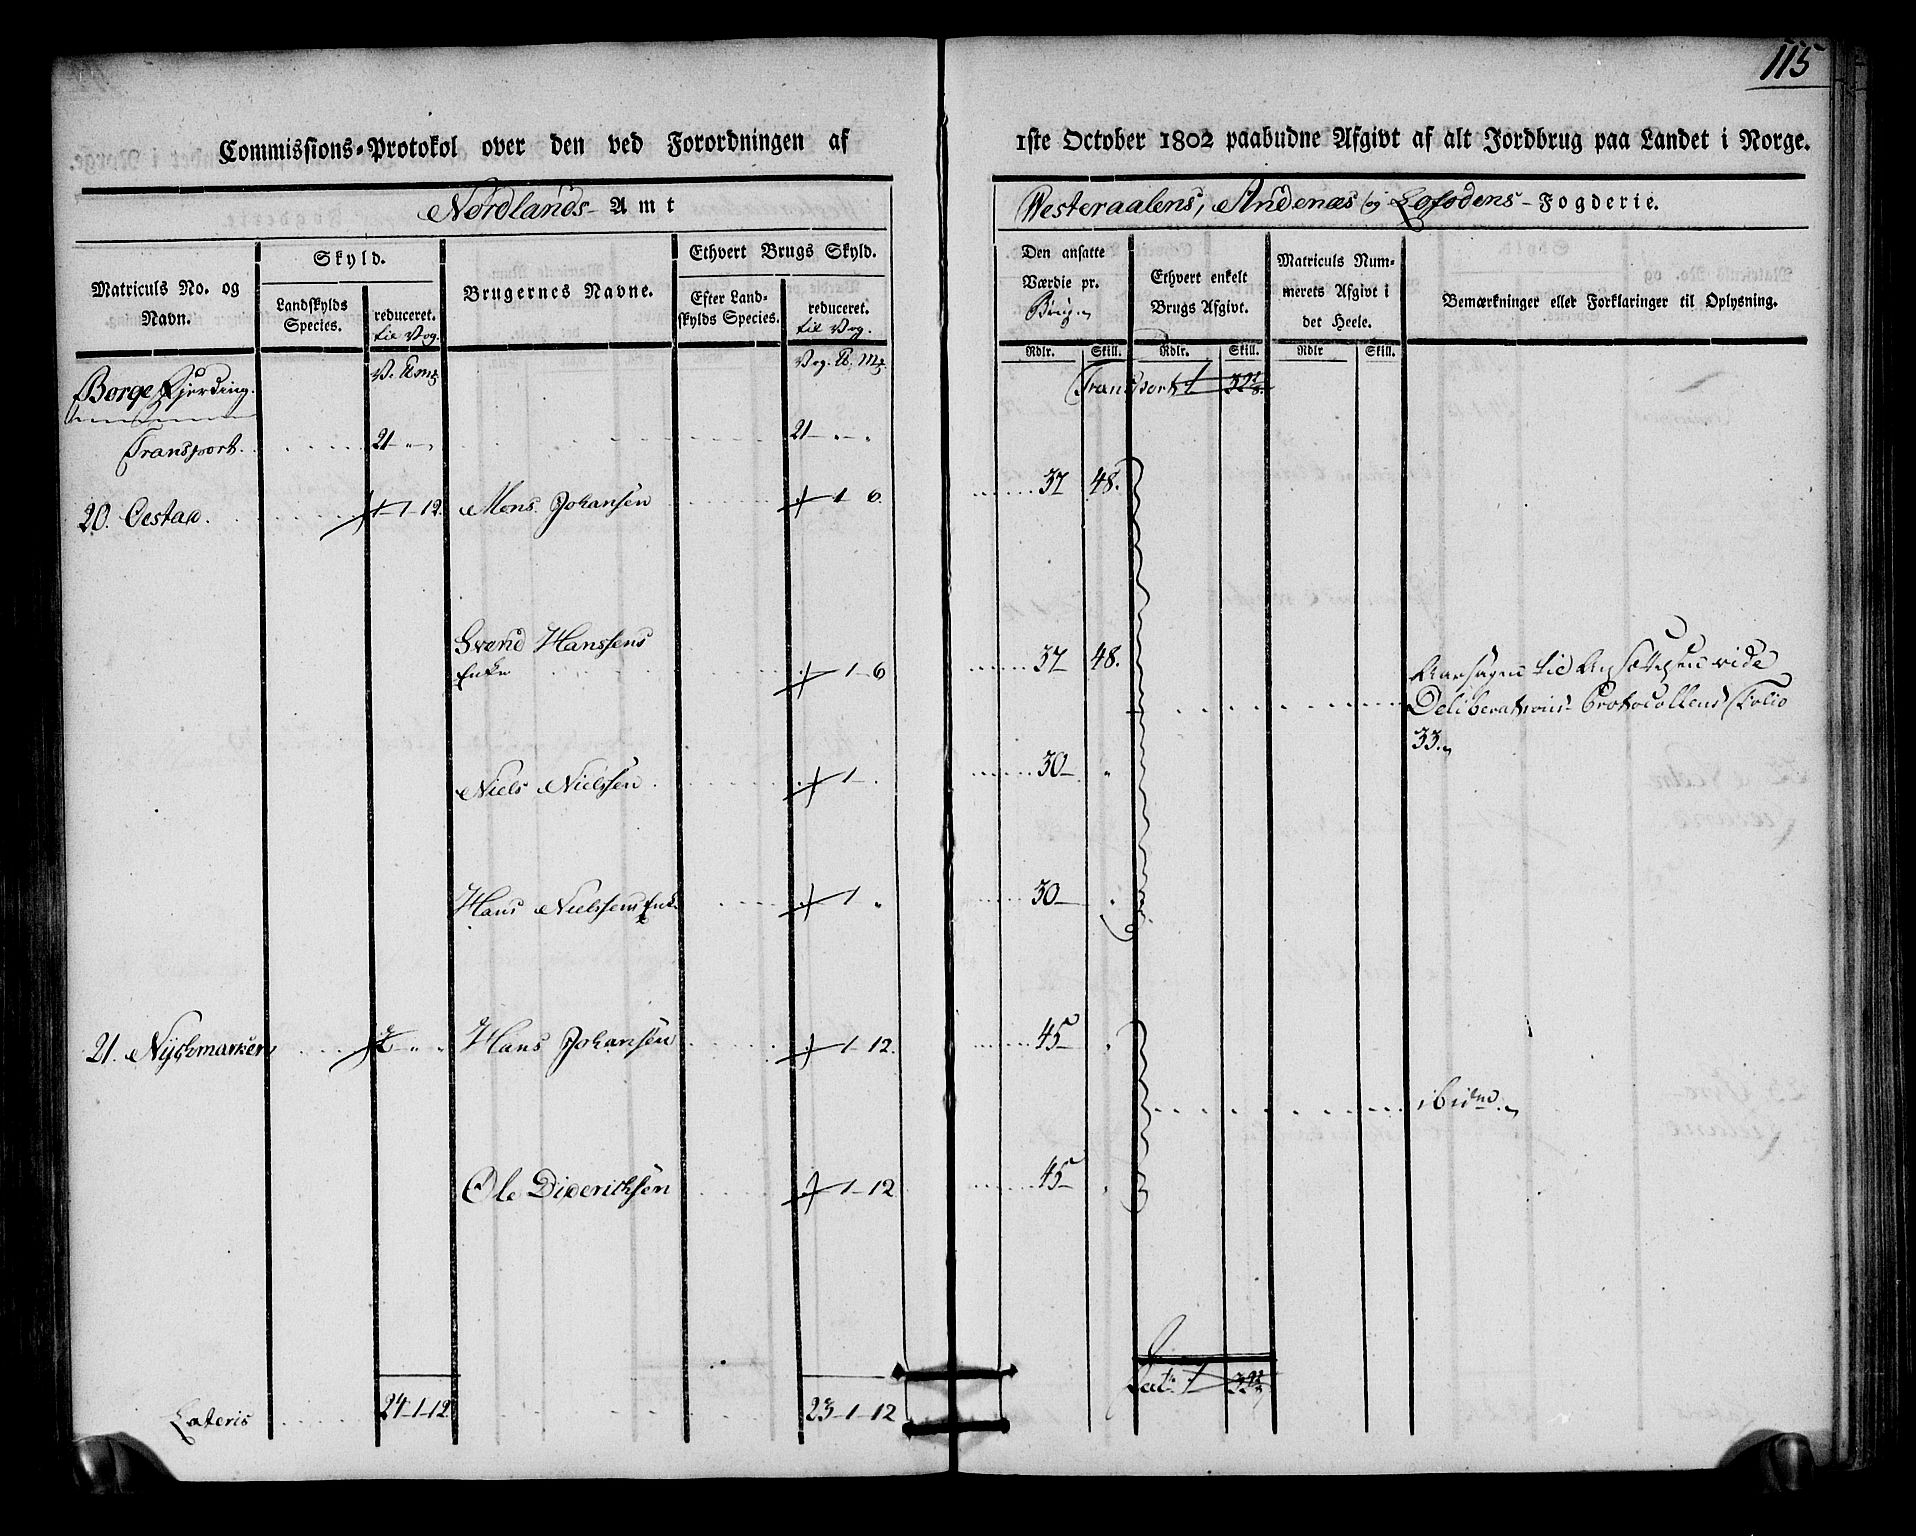 115
Commissions-Protokol over den ved Forordningen af 1ste October 1802 paabudne Afgivt af alt Jordbrug paa Landet i Norge.
Nordlands Amt Westeraalens, Andenæs og Lofodens-Fogderie.
Matriculs No. og Navn.
Skyld.
Landskylds Species.
reduceret. til Vog.
Brugernes Navne.
Ethvert Brugs Skyld.
Efter Landskylds Species.
reduceret. til Vog.
Den ansatte Værdie pr. Brug
Ethvert enkelt Brugs Afgivt.
Matriculs Nummerets Afgivt i det Heele.
Bemærkninger eller Forklaringer til Oplysning.
Rdlr. Skill. Rdlr. Skill. Rdlr Skill.
Borge Fjerding. Transport
Transport. 21 „ „ 21 „ „
20. Oestad. 1-1-12. Mons Johansen 1 6. 37 48.
Svend Hanssens
Enke 1-6 37 48.
Aarsagen til Ansættelsen vide
Deliberations-Protocollens Folio
33.
Niels Nielssen. 1 . 30 „
Hans Nielssens Enke 1 „ 30 „
21. 2 „ „ Hans Johansen 1-12. 45 „
ibidem.
Ole Diderichsen 1-12 45 „
Lateris 24-1-12 23-1-12 Lat.